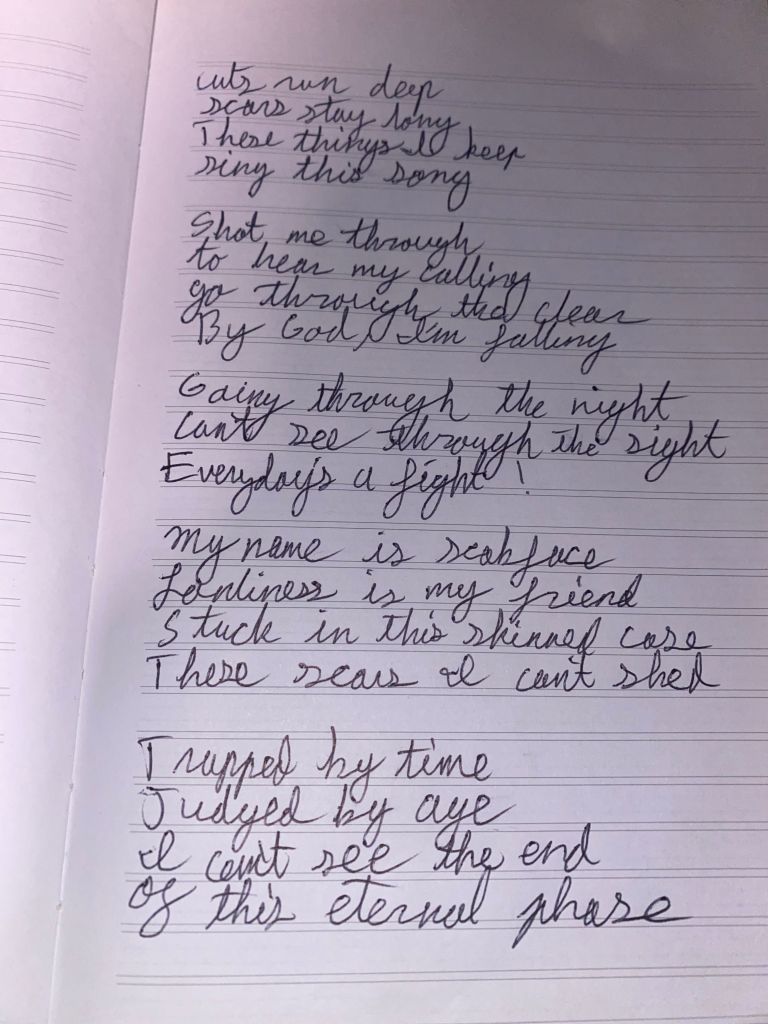 cuts run deep
scars stay long
These things I keep
sing this song
Shot me through
to hear my calling
go through the clear
By God, I'm falling
Going through the night
Can't see through the sight
Everyday's a fight!
My name is scabface
Lonliness is my friend
Stuck in this skinned case
These scars I can't shed
Trapped by time
Judged by age
I can't see the end
Of this eternal phase